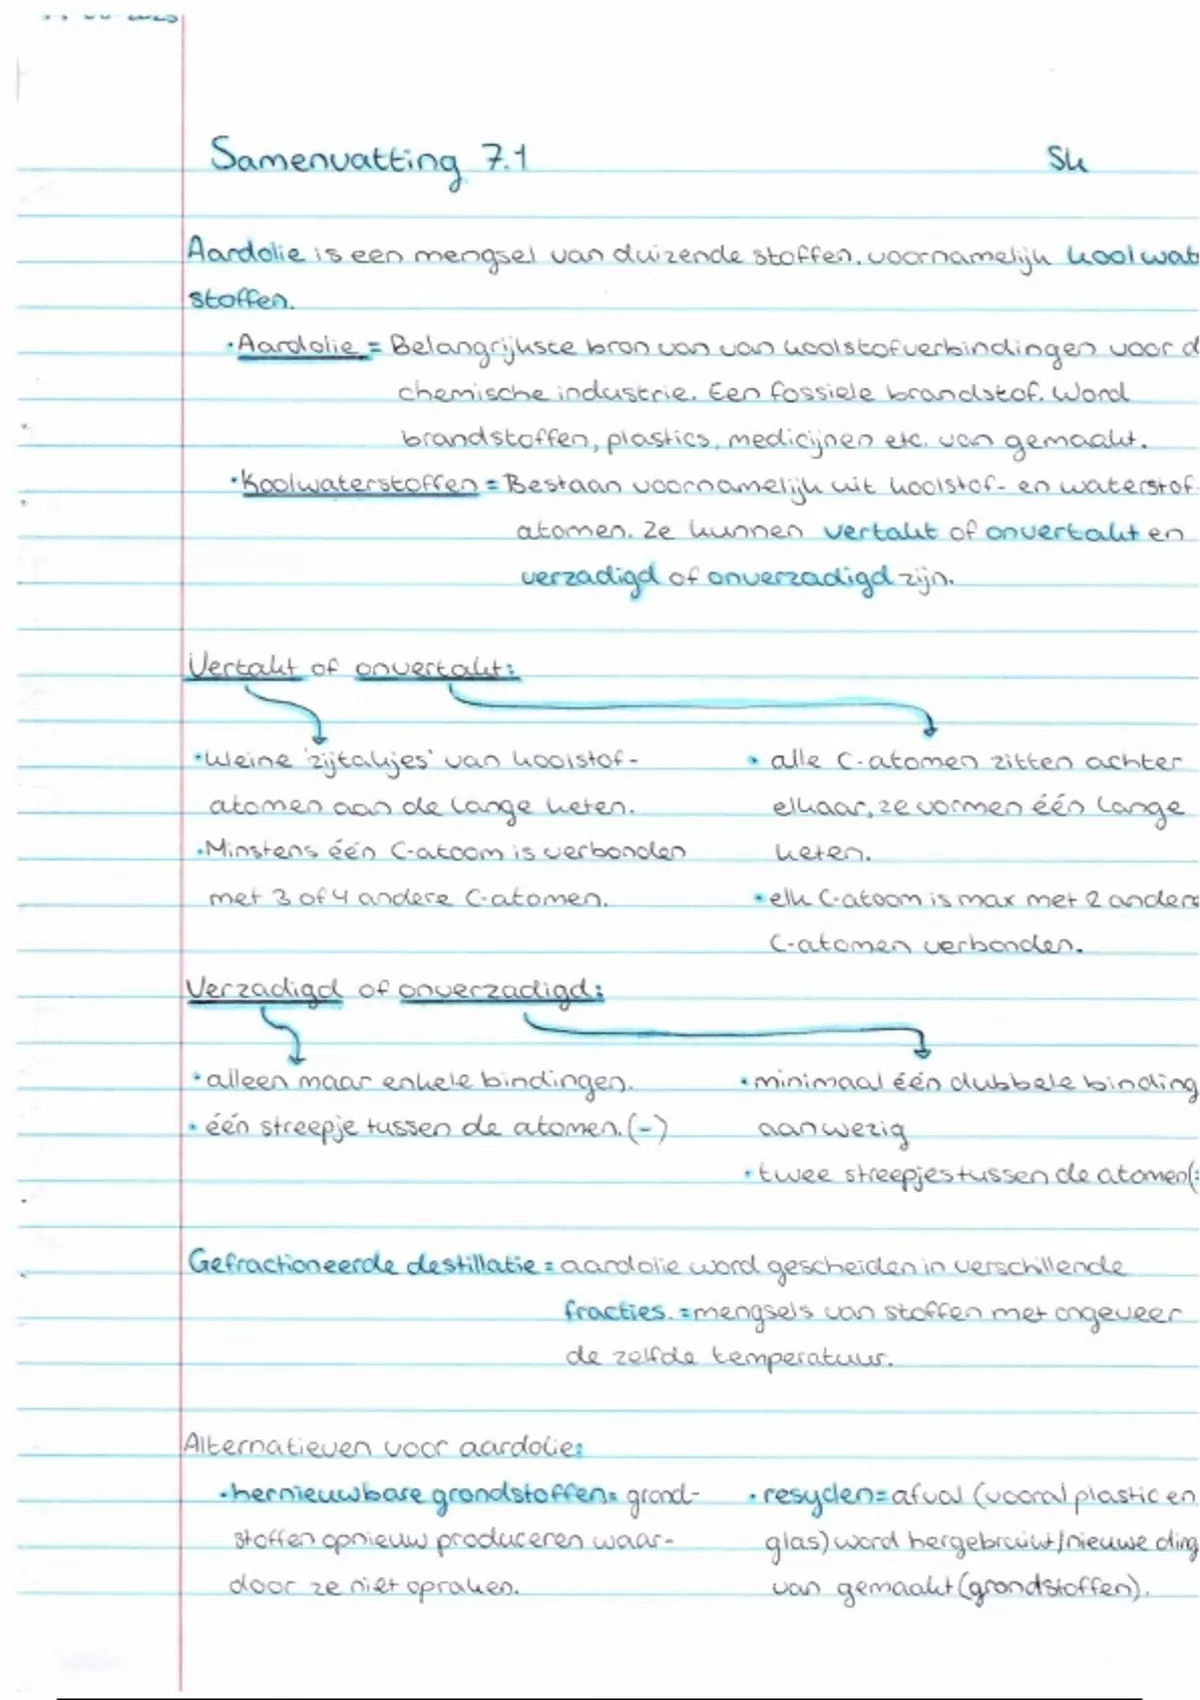 Samenvatting 7.1 Sk
Aardolie is een mengsel van duizende stoffen. voornamelijk koolwat
stoffen.
• Aardolie = Belangrijkste bron van van koolstofverbindingen voor d
chemische industrie. Een fossiele brandstof. Word
brandstoffen, plastics, medicijnen etc. van gemaakt.
• Koolwaterstoffen = Bestaan voornamelijk uit koolstof- en waterstof-
atomen. Ze kunnen vertakt of onvertakt en
verzadigd of onverzadigd zijn.
Vertakt of onvertakt:
• kleine 'zijtakjes' van koolstof-
atomen aan de lange keten.
• Minstens één C-atoom is verbonden
met 3 of 4 andere C-atomen.
• alle C-atomen zitten achter
elkaar, ze vormen één lange
keten.
• elk C-atoom is max met 2 andere
C-atomen verbonden.
Verzadigd of onverzadigd:
• alleen maar enkele bindingen.
• één streepje tussen de atomen. (-)
• minimaal één dubbele binding
aanwezig
• twee streepjes tussen de atomen (=
Gefractioneerde destillatie = aardolie word gescheiden in verschillende
fracties. = mengsels van stoffen met ongeveer
de zelfde temperatuur.
Alternatieven voor aardolie:
• hernieuwbare grondstoffen = grond-
stoffen opnieuw produceren waar-
door ze niet opraken.
• resyclen = afval (vooral plastic en
glas) word hergebruikt/nieuwe ding
van gemaakt (grondstoffen).